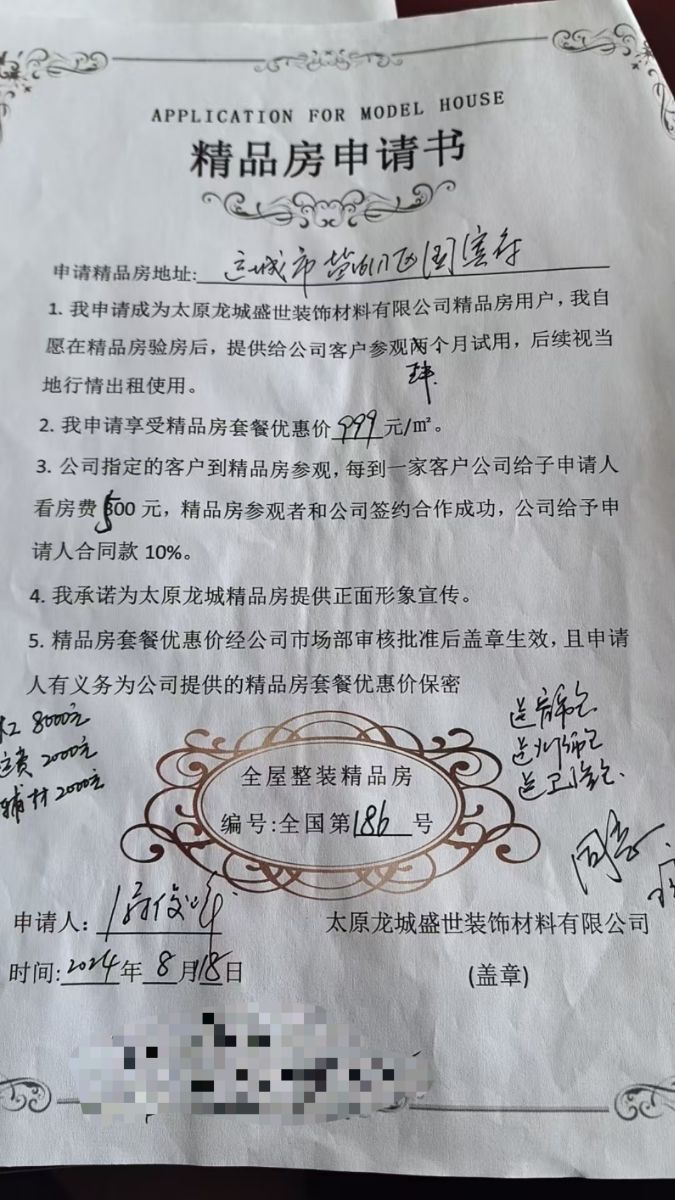 APPLICATION FOR MODEL HOUSE
精品房申请书
申请精品房地址: 运城市
1. 我申请成为太原龙城盛世装饰材料有限公司精品房用户，我自
愿在精品房验房后，提供给公司客户参观两个月试用，后续视当
半
地行情出租使用。
2. 我申请享受精品房套餐优惠价 999 元/㎡。
3. 公司指定的客户到精品房参观，每到一家客户公司给予申请人
看房费 500 元，精品房参观者和公司签约合作成功，公司给予申
请人合同款 10%。
4. 我承诺为太原龙城精品房提供正面形象宣传。
5. 精品房套餐优惠价经公司市场部审核批准后盖章生效，且申请
人有义务为公司提供的精品房套餐优惠价保密
8000元
运费 2000元
辅材 2000元
全屋整装精品房
编号:全国第 186 号
同意
申请人：
太原龙城盛世装饰材料有限公司
时间: 2024 年 8 月 18 日
(盖章)